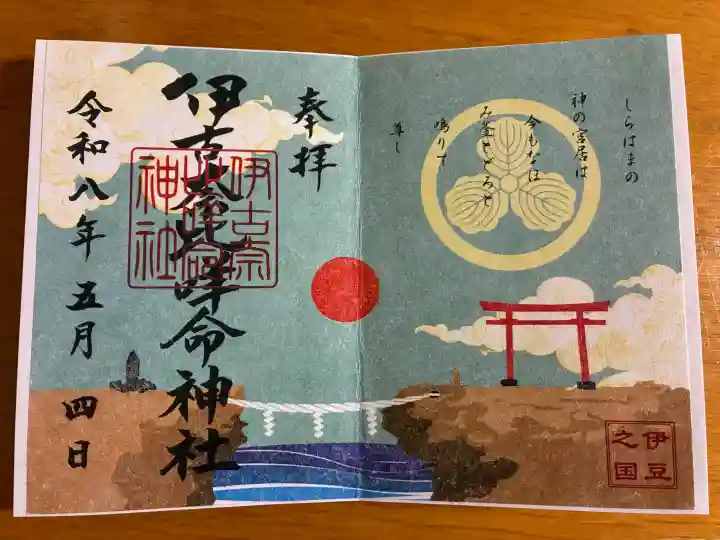 しらはまの
神の宮居は
今もなほ
み釜とどろと
鳴りて
尊し
伊豆
之国
奉拝
伊古奈比咩命神社
伊古奈
比咩命
神社
令和八年 五月 四日